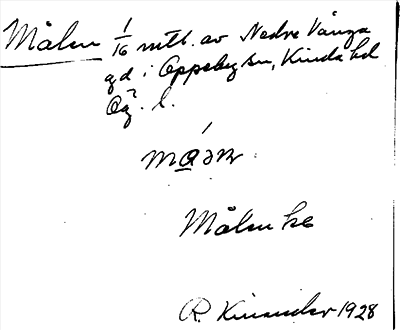 Målen 1/16 mtl. av Nedre Vånga
gd i Oppeby sn, Kinda hd
Ög. l.
Målen hs
R. Kinander 1928